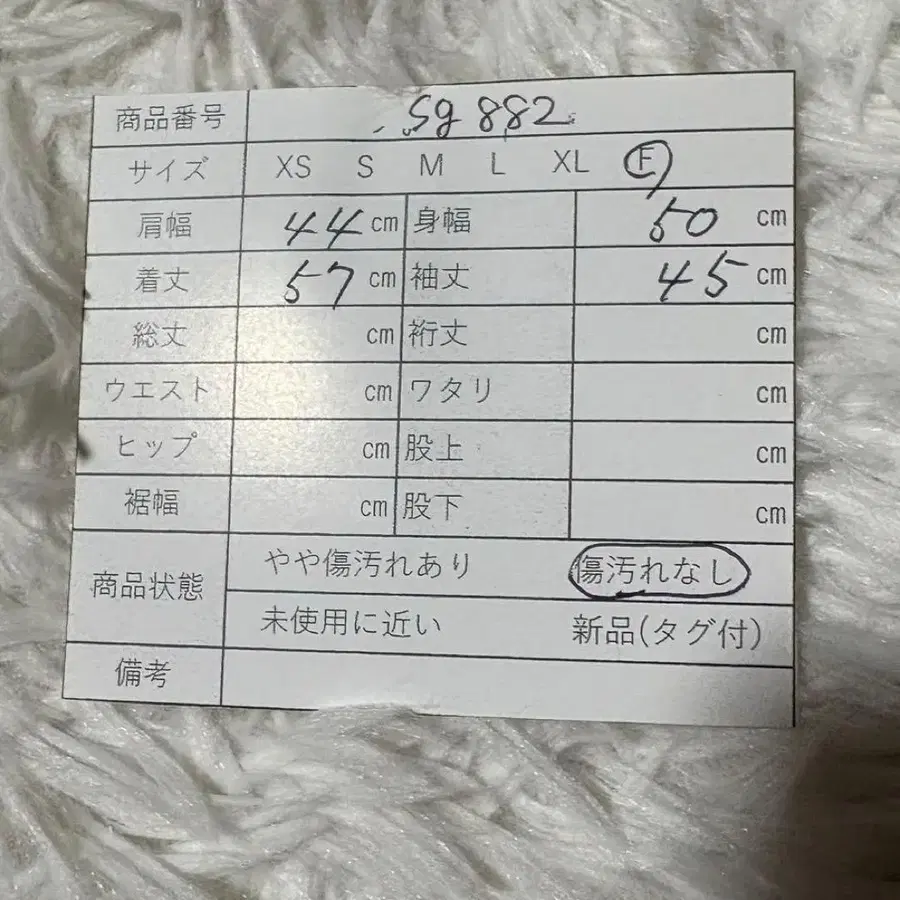 商品番号 sg 882
サイズ XS S M L XL F
肩幅 44 cm 身幅 50 cm
着丈 57 cm 袖丈 45 cm
総丈 cm 裄丈 cm
ウエスト cm ワタリ cm
ヒップ cm 股上 cm
裾幅 cm 股下 cm
商品状態 やや傷汚れあり 傷汚れなし
未使用に近い 新品(タグ付)
備考